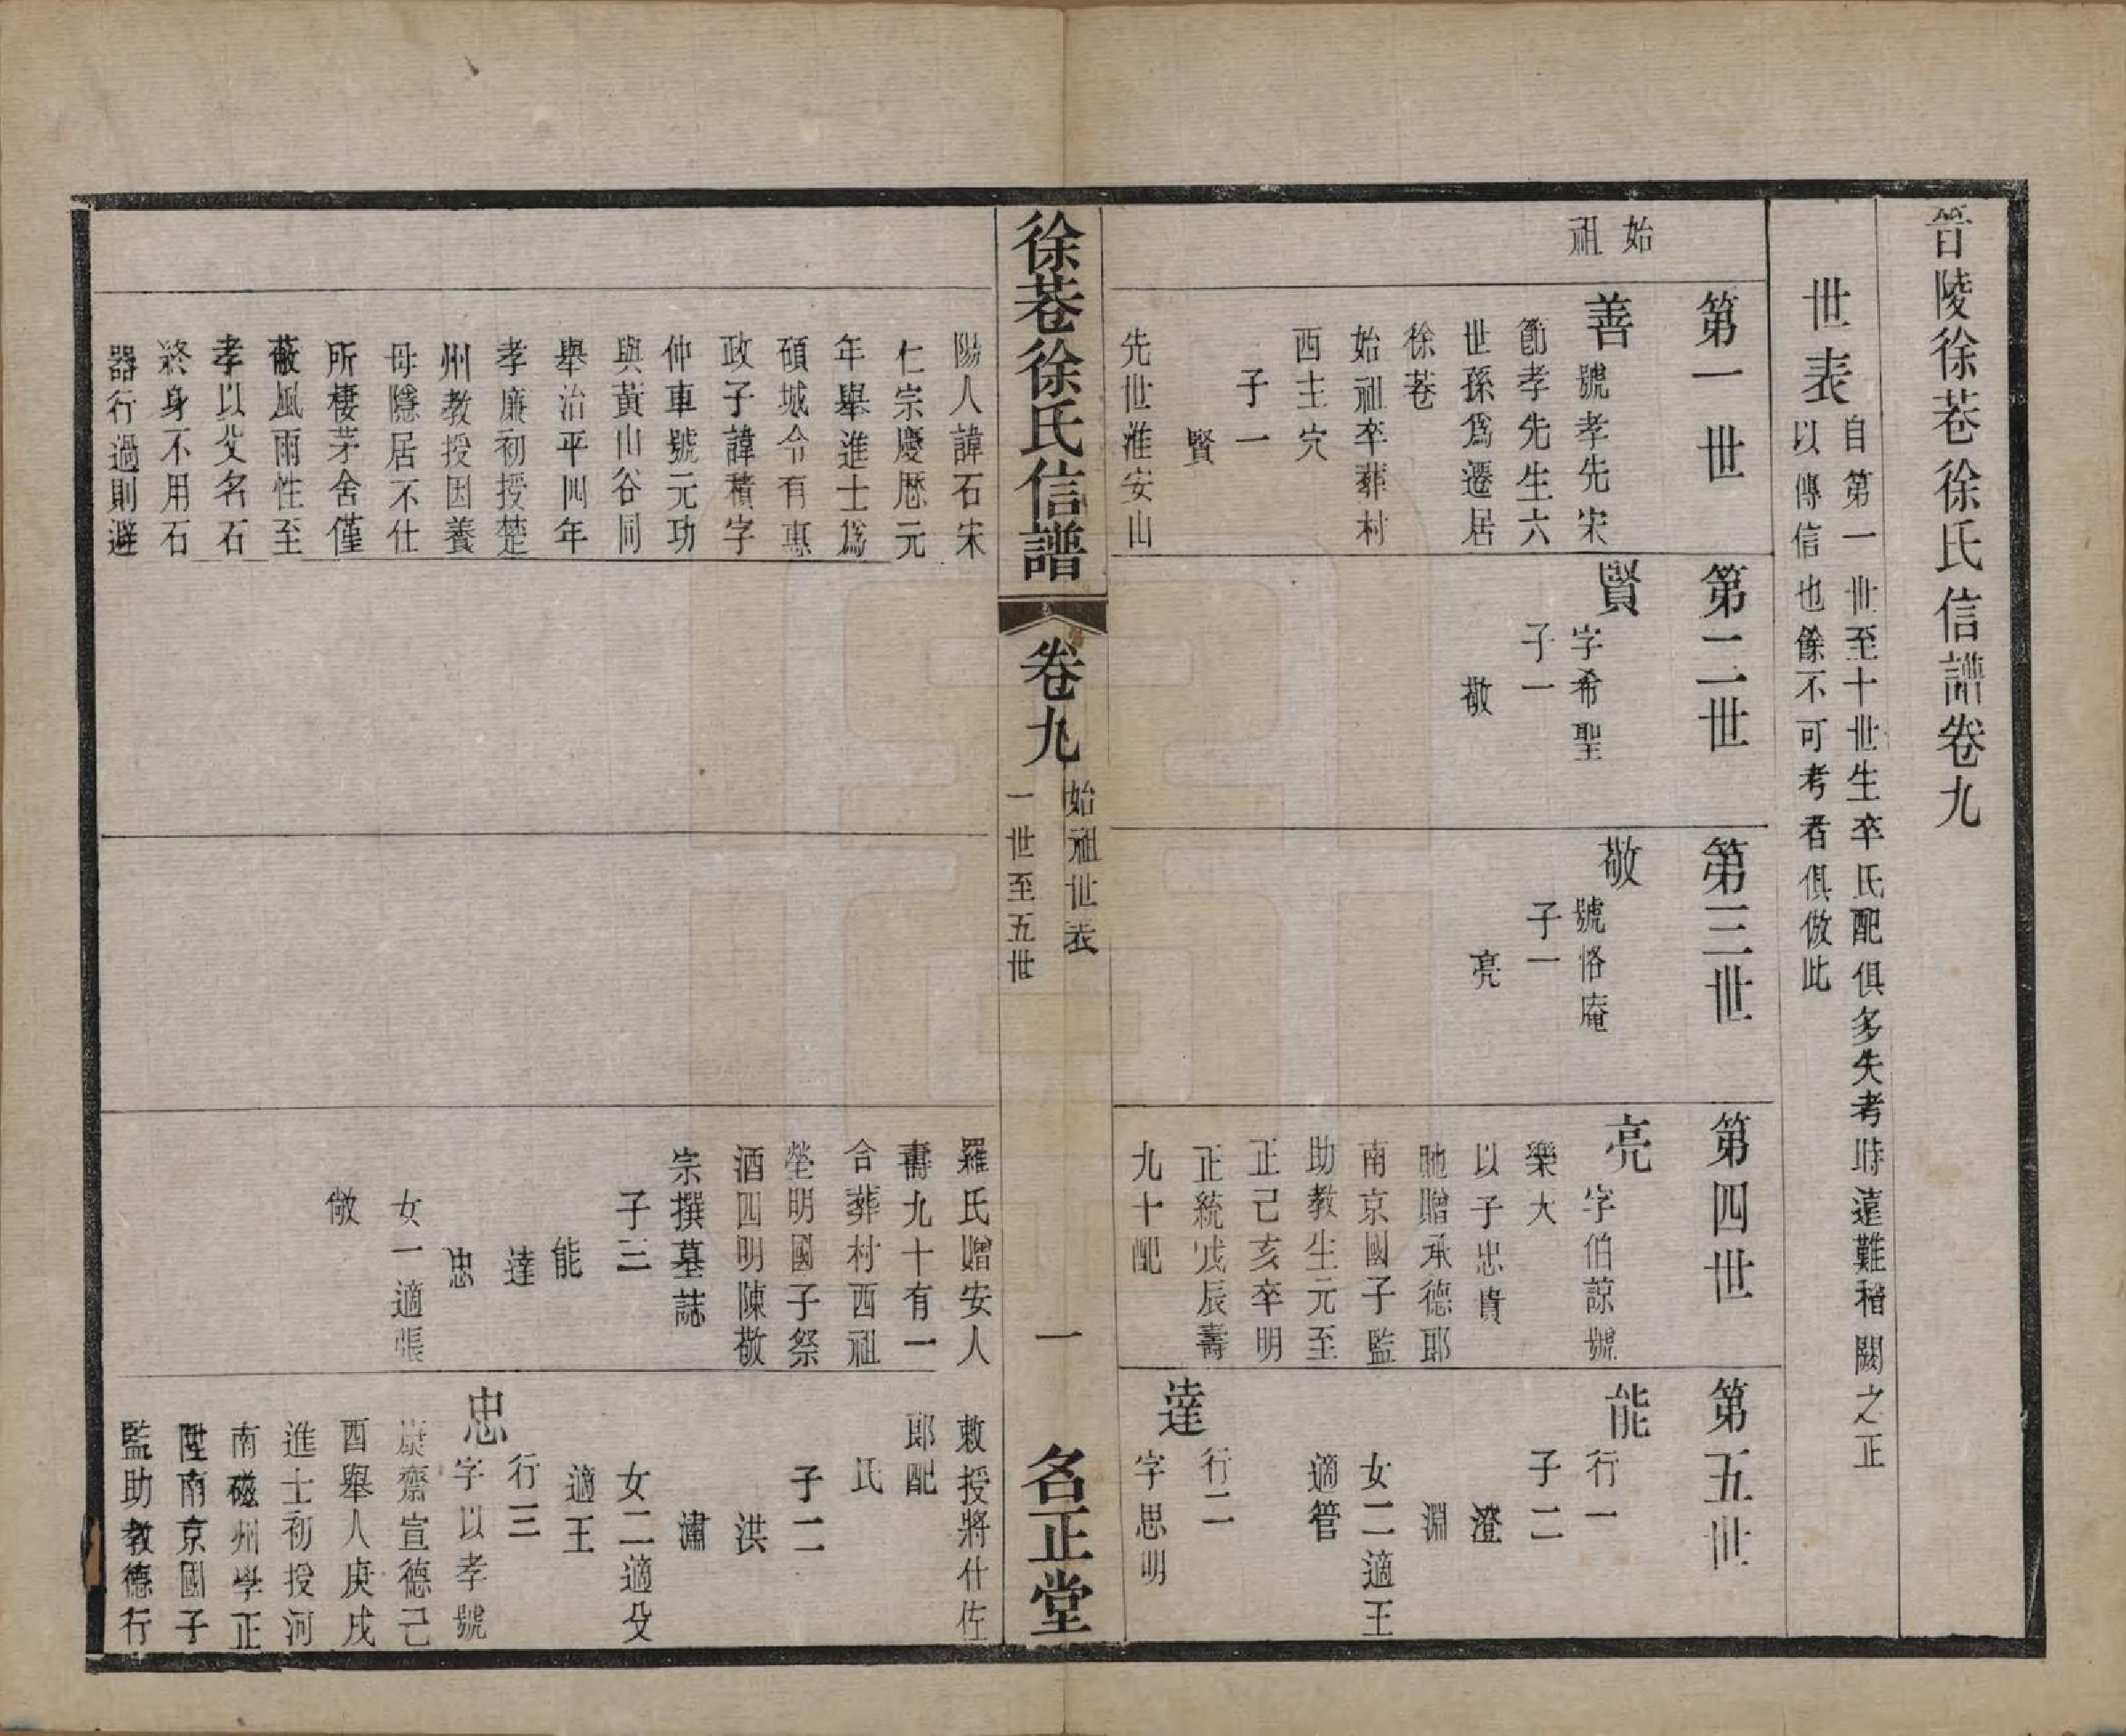 晉陵徐巷徐氏信譜卷九
世表
自第一世至十世生卒氏配俱多失考時遠難稽闕之正
以傳信也餘不可考者俱倣此
第一世
始
祖
善
號孝先宋
節孝先生六
世孫爲遷居
徐巷
始祖卒葬村
西主穴
子一
賢
先世淮安山
第二世
賢
字希聖
子一
敬
第三世
敬
號恪庵
子一
亮
第四世
亮
字伯諒號
樂大
以子忠貴
馳贈承德郎
南京國子監
助教生元至
正己亥卒明
正統戊辰壽
九十配
第五世
能
行一
子二
澄
淵
女二適王
適管
達
行二
字思明
徐巷徐氏信譜
卷九
始祖世表
一世至五世
一
名正堂
陽人諱石宋
仁宗慶厯元
年舉進士爲
碩城令有惠
政子諱積字
仲車號元功
與黃山谷同
舉治平四年
孝廉初授楚
州教授因養
母隱居不仕
所棲茅舍僅
蔽風雨性至
孝以父名石
終身不用石
器行過則避
羅氏贈安人
壽九十有一
合葬村西祖
塋明國子祭
酒四明陳敬
宗撰墓誌
子三
能
達
忠
女一適張
敞
敕授將仕佐
郎配
氏
子二
洪
潚
女二適殳
適王
行三
忠
字以孝號
康齋宣德己
酉舉人庚戌
進士初授河
南磁州學正
陞南京國子
監助教德行